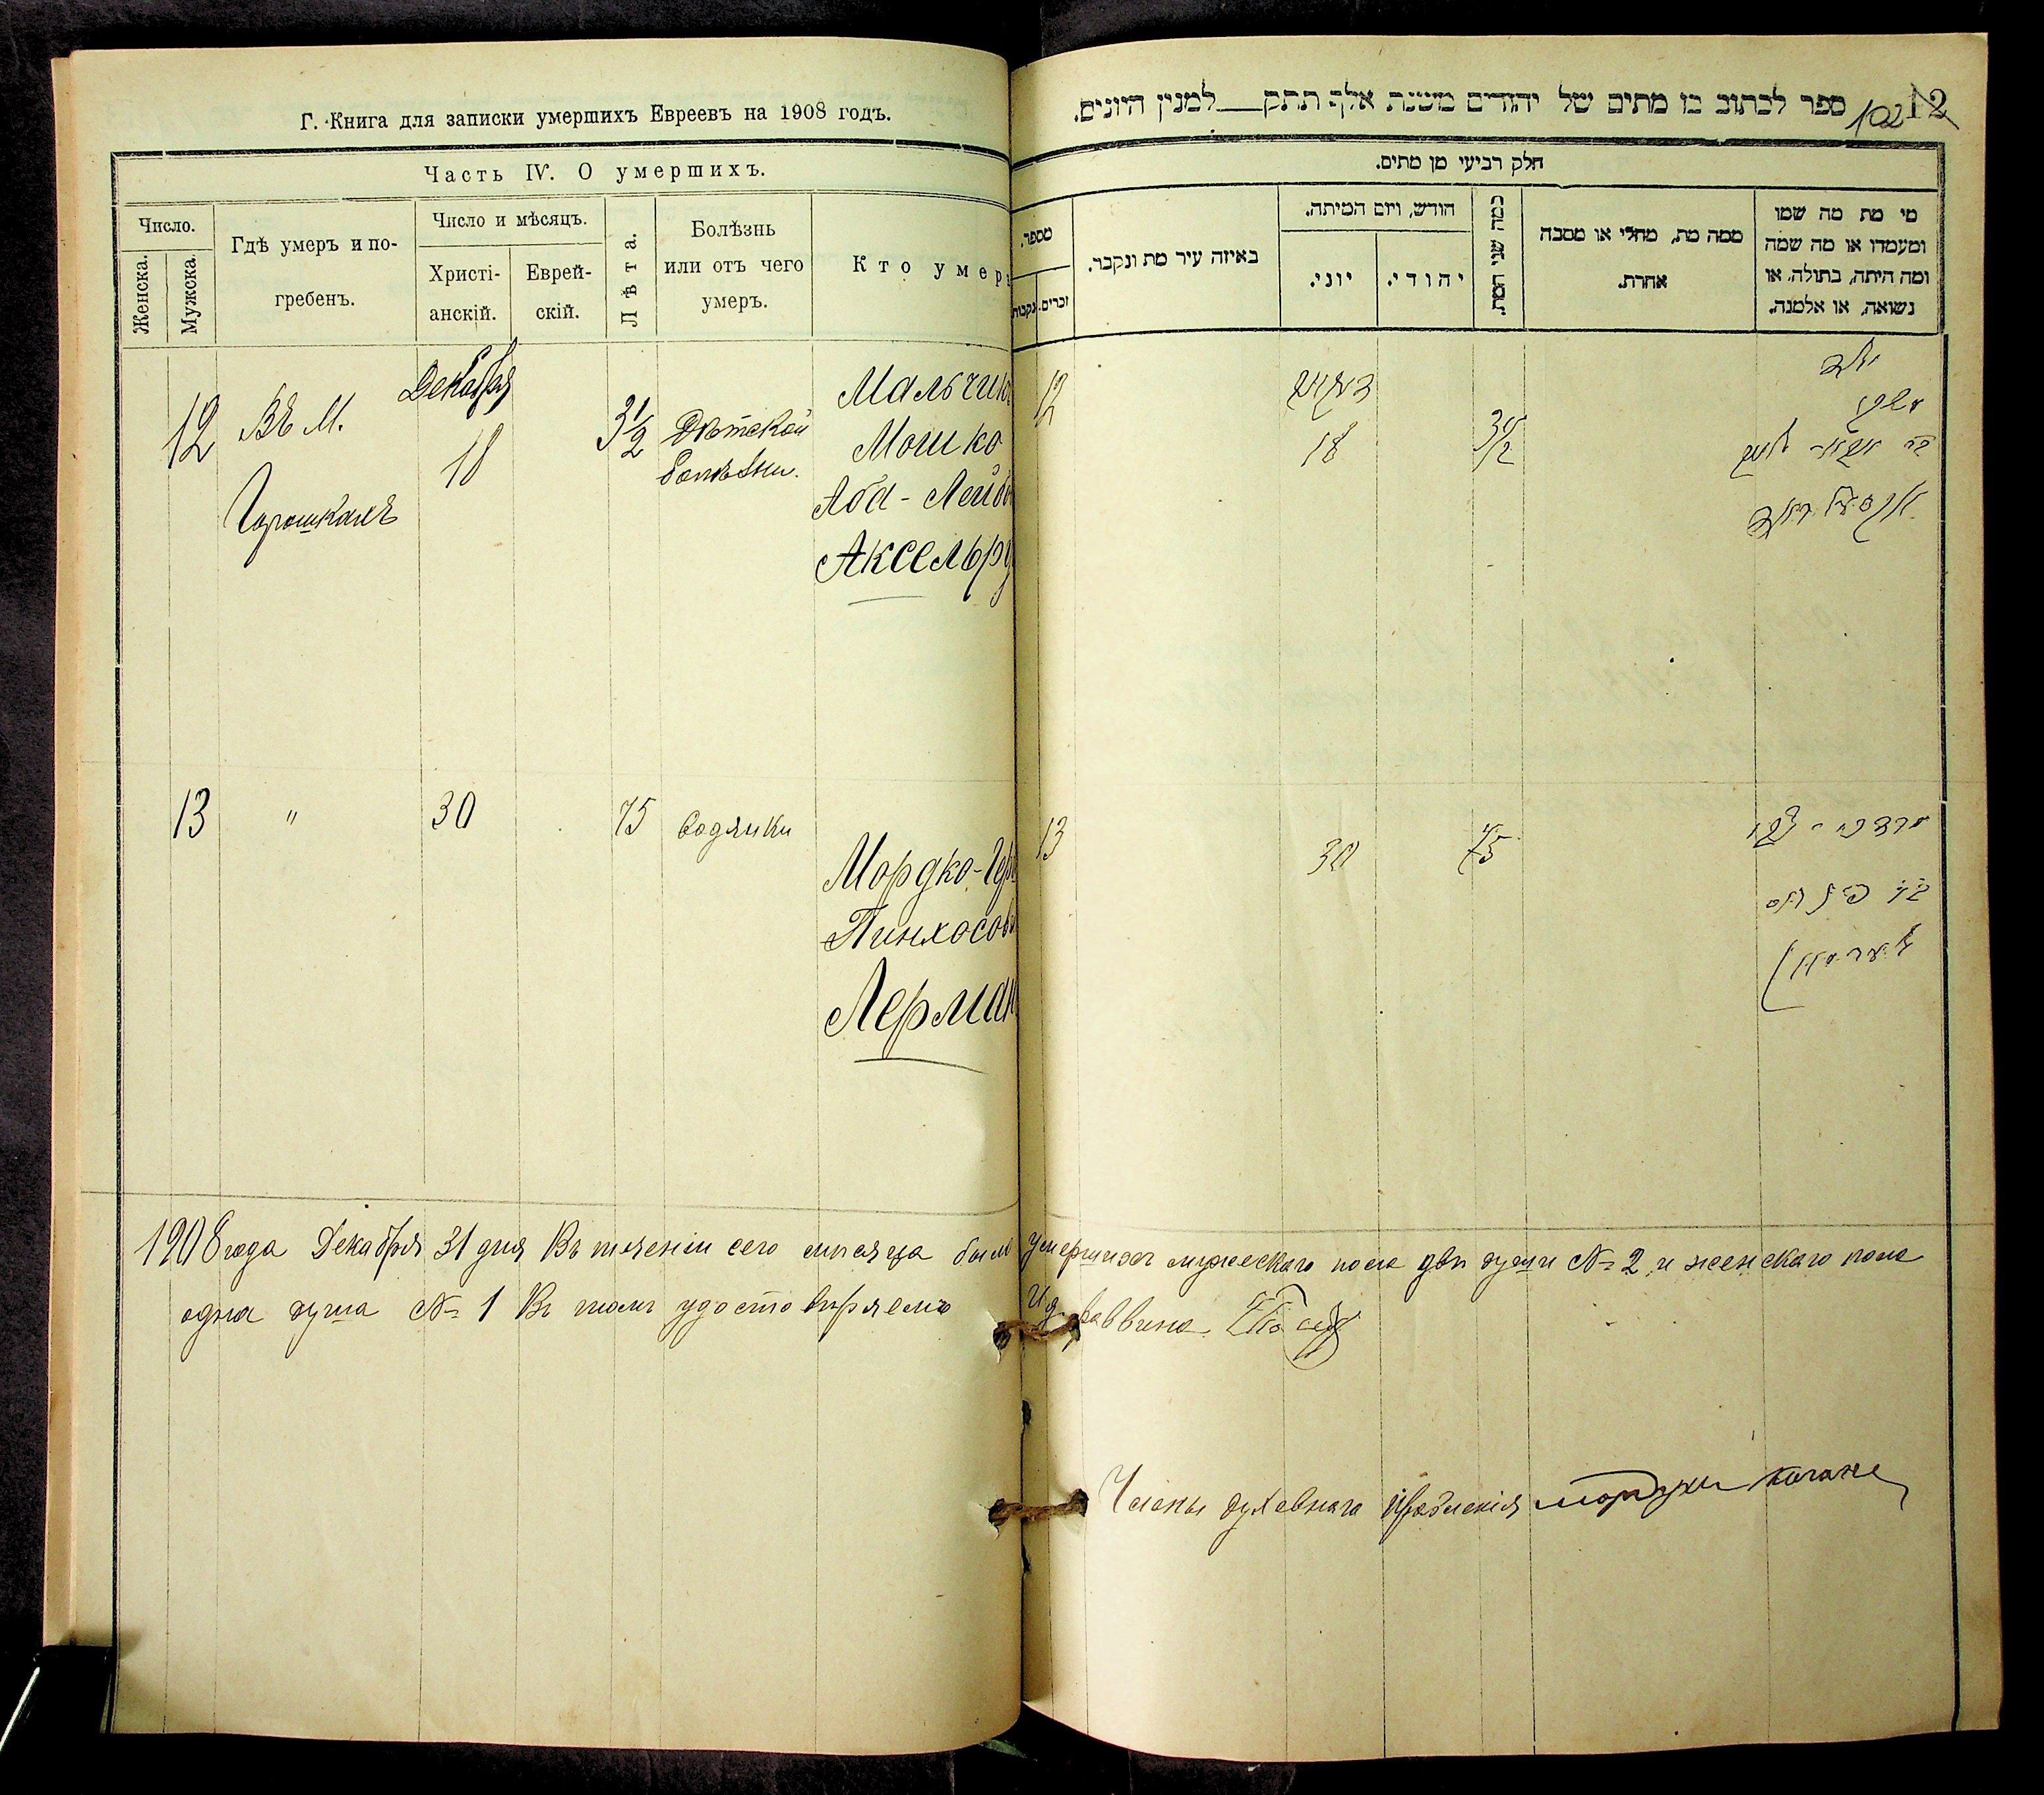 Г. Книга для записки умершихъ Евреевъ на 1908 годъ.
Часть IV. О умершихъ.
Число.
Женска.
Мужска.
Гдѣ умеръ и по-
гребенъ.
Число и мѣсяцъ.
Христі-
анскій.
Еврей-
скій.
Лѣта.
Болѣзнь
или отъ чего
умеръ.
Кто умер
12
Въ М.
Горошкахъ
Декабря
18
3½
Дѣтской
болѣзни.
Мальчикъ
Мошко
Аба-Лейбо
Аксельр
13
"
30
75
водянки
Мордко-Гер
Пинхосов
Лерман
1908 года Декабря 31 дня Въ теченіи сего мѣсяца было
одна душа № 1 Въ томъ удостовѣряемъ
ספר לכתוב בו מתים של יהודים משנת אלף תתק למנין היונים.
102
12
חלק רביעי מן מתים.
מספר.
נקבות
זכרים.
באיזה עיר מת ונקבר.
חודש, ויום המיתה.
יוני.
יהודי.
כמה שני המת.
ממה מת, מחלי או מסבה
אחרת.
מי מת מה שמו
ומעמדו או מה שמה
ומה היתה, בתולה, או
נשואה, או אלמנה.
12
18
3½
ילד
משה
13
30
75
מרדכי
בן פינחס
לערמאן
умершихъ мужескаго пола двѣ души № 2 и женскаго пола
И д раввина
Члены духовнаго правленія